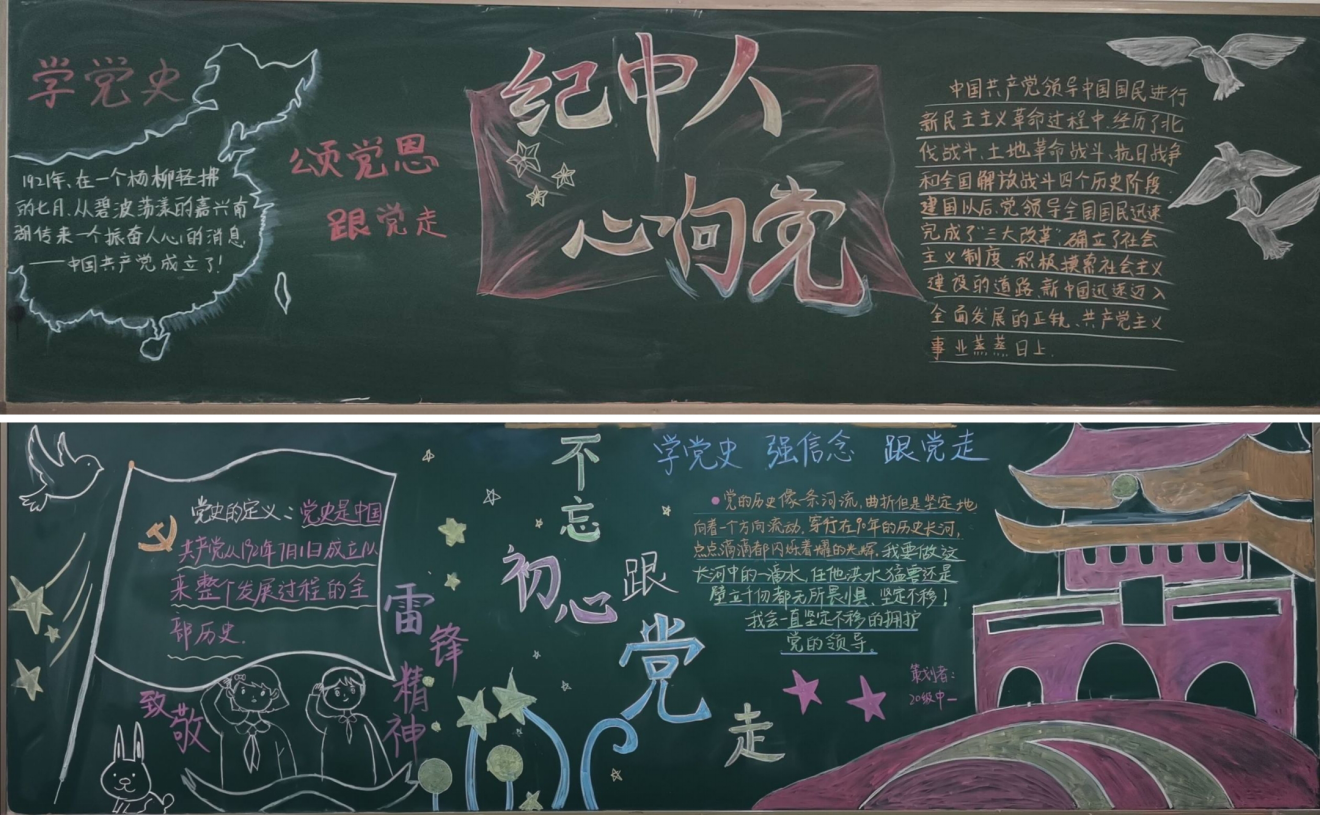 学党史
1921年、在一个杨柳轻拂
的七月、从碧波荡漾的嘉兴南
湖传来一个振奋人心的消息
——中国共产党成立了!
颂党恩
跟党走
纪中人
心向党
中国共产党领导中国国民进行
新民主主义革命过程中、经历了北
伐战斗、土地革命战斗、抗日战争
和全国解放战斗四个历史阶段.
建国以后、党领导全国国民迅速
完成了“三大改革”、确立了社会
主义制度、积极摸索社会主义
建设的道路、新中国迅速迈入
全面发展的正轨、共产党主义
事业蒸蒸日上.
党史的定义:党史是中国
共产党从1921年7月1日成立以
来整个发展过程的全
部历史.
致敬
雷锋精神
不忘
初心
跟
党
走
学党史 强信念 跟党走
党的历史像一条河流,曲折但是坚定地
向着一个方向流动,穿行在90年的历史长河,
点点滴滴都闪烁着耀的光辉.我要做这
长河中的一滴水,任他洪水猛兽还是
壁立千仞都无所畏惧、坚定不移!
我会一直坚定不移的拥护
党的领导.
策划者:
20级中一